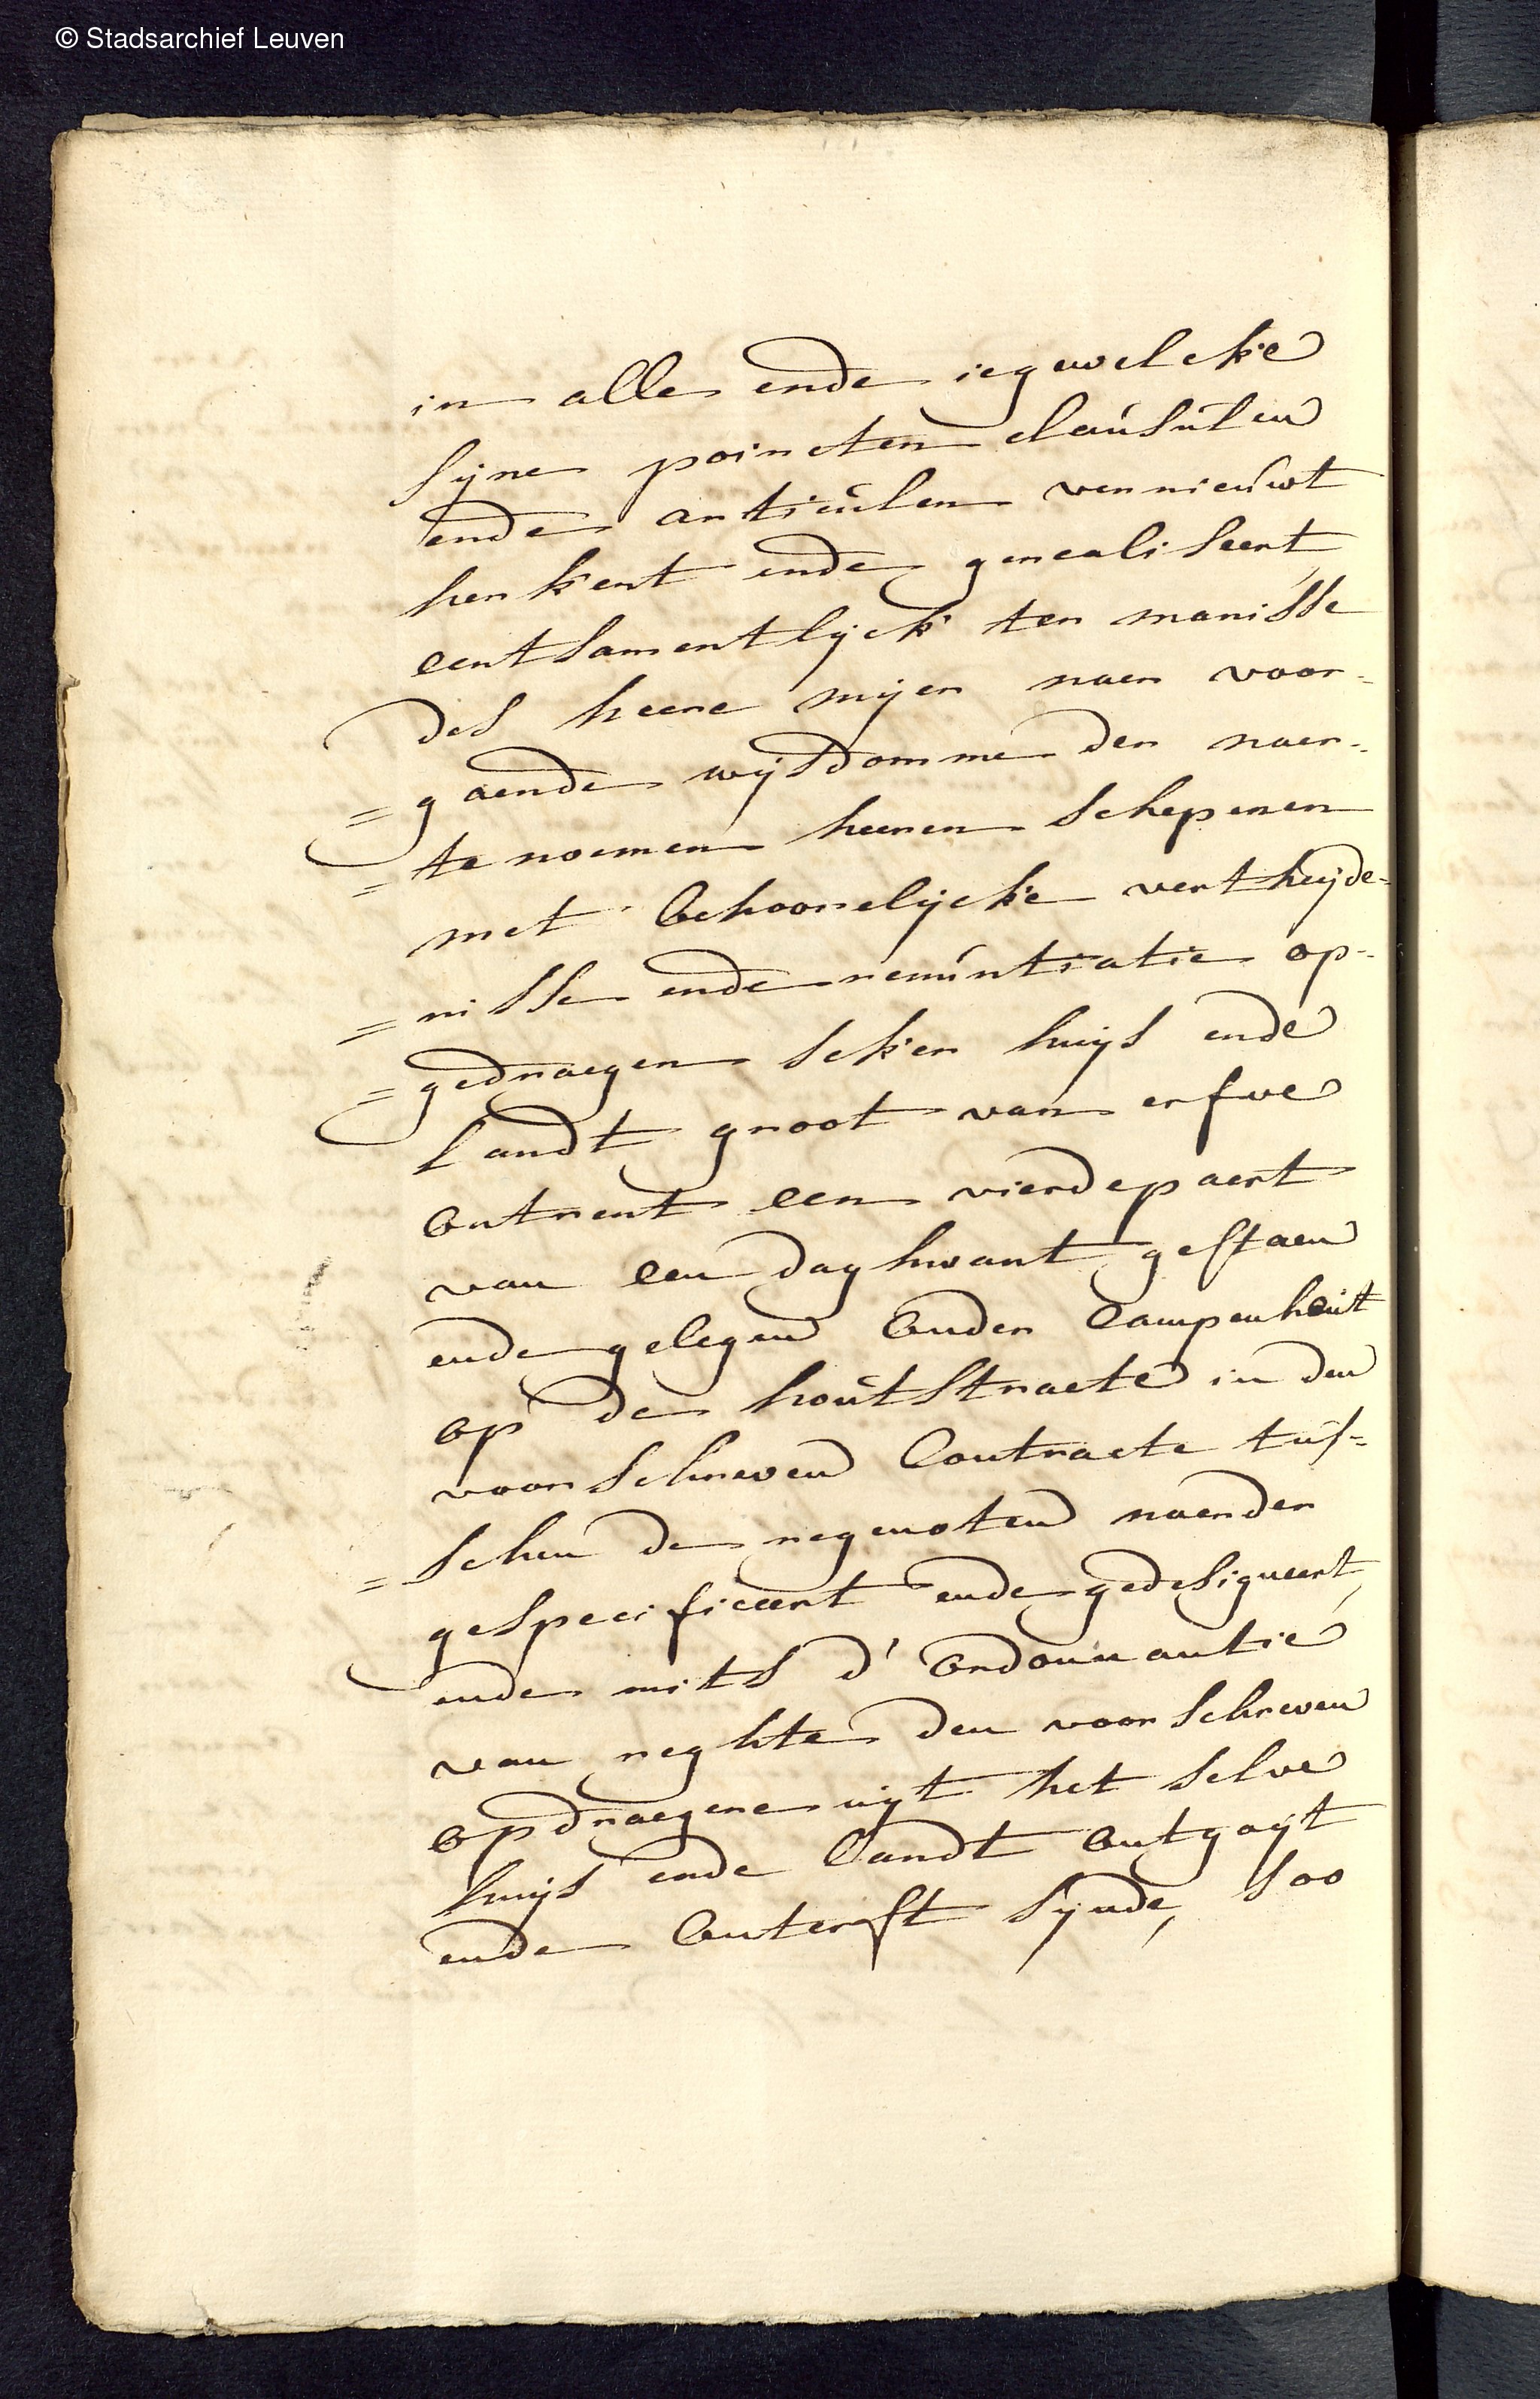 © Stadsarchief Leuven
in alle ende iegewelcke
syne poincten clausulen
ende articulen vernieuwt
herkent ende gerealiseert
eentsamentlyck ter manisse
des heere mijer naer voor-
=gaende wijsdomme der naer-
=te noemen heeren schepenen
met behoorelijcke verthijde-
=nisse ende renuntiatie op-
=gedraegen seker huijs ende
landt groot van erfve
ontrent een vierdepaert
van een daghwant gestaen
ende gelegen onder Campenhout
op de houtstraete in den
voorschreven Contracte tus-
=schen de regenoten naerder
gespecificeert ende gedesigneert,
ende mits d'ordonnantie
van reghte den voorschreven
opdraegere uijt het selve
huijs ende landt ontgoijt
ende onterft synde, soo